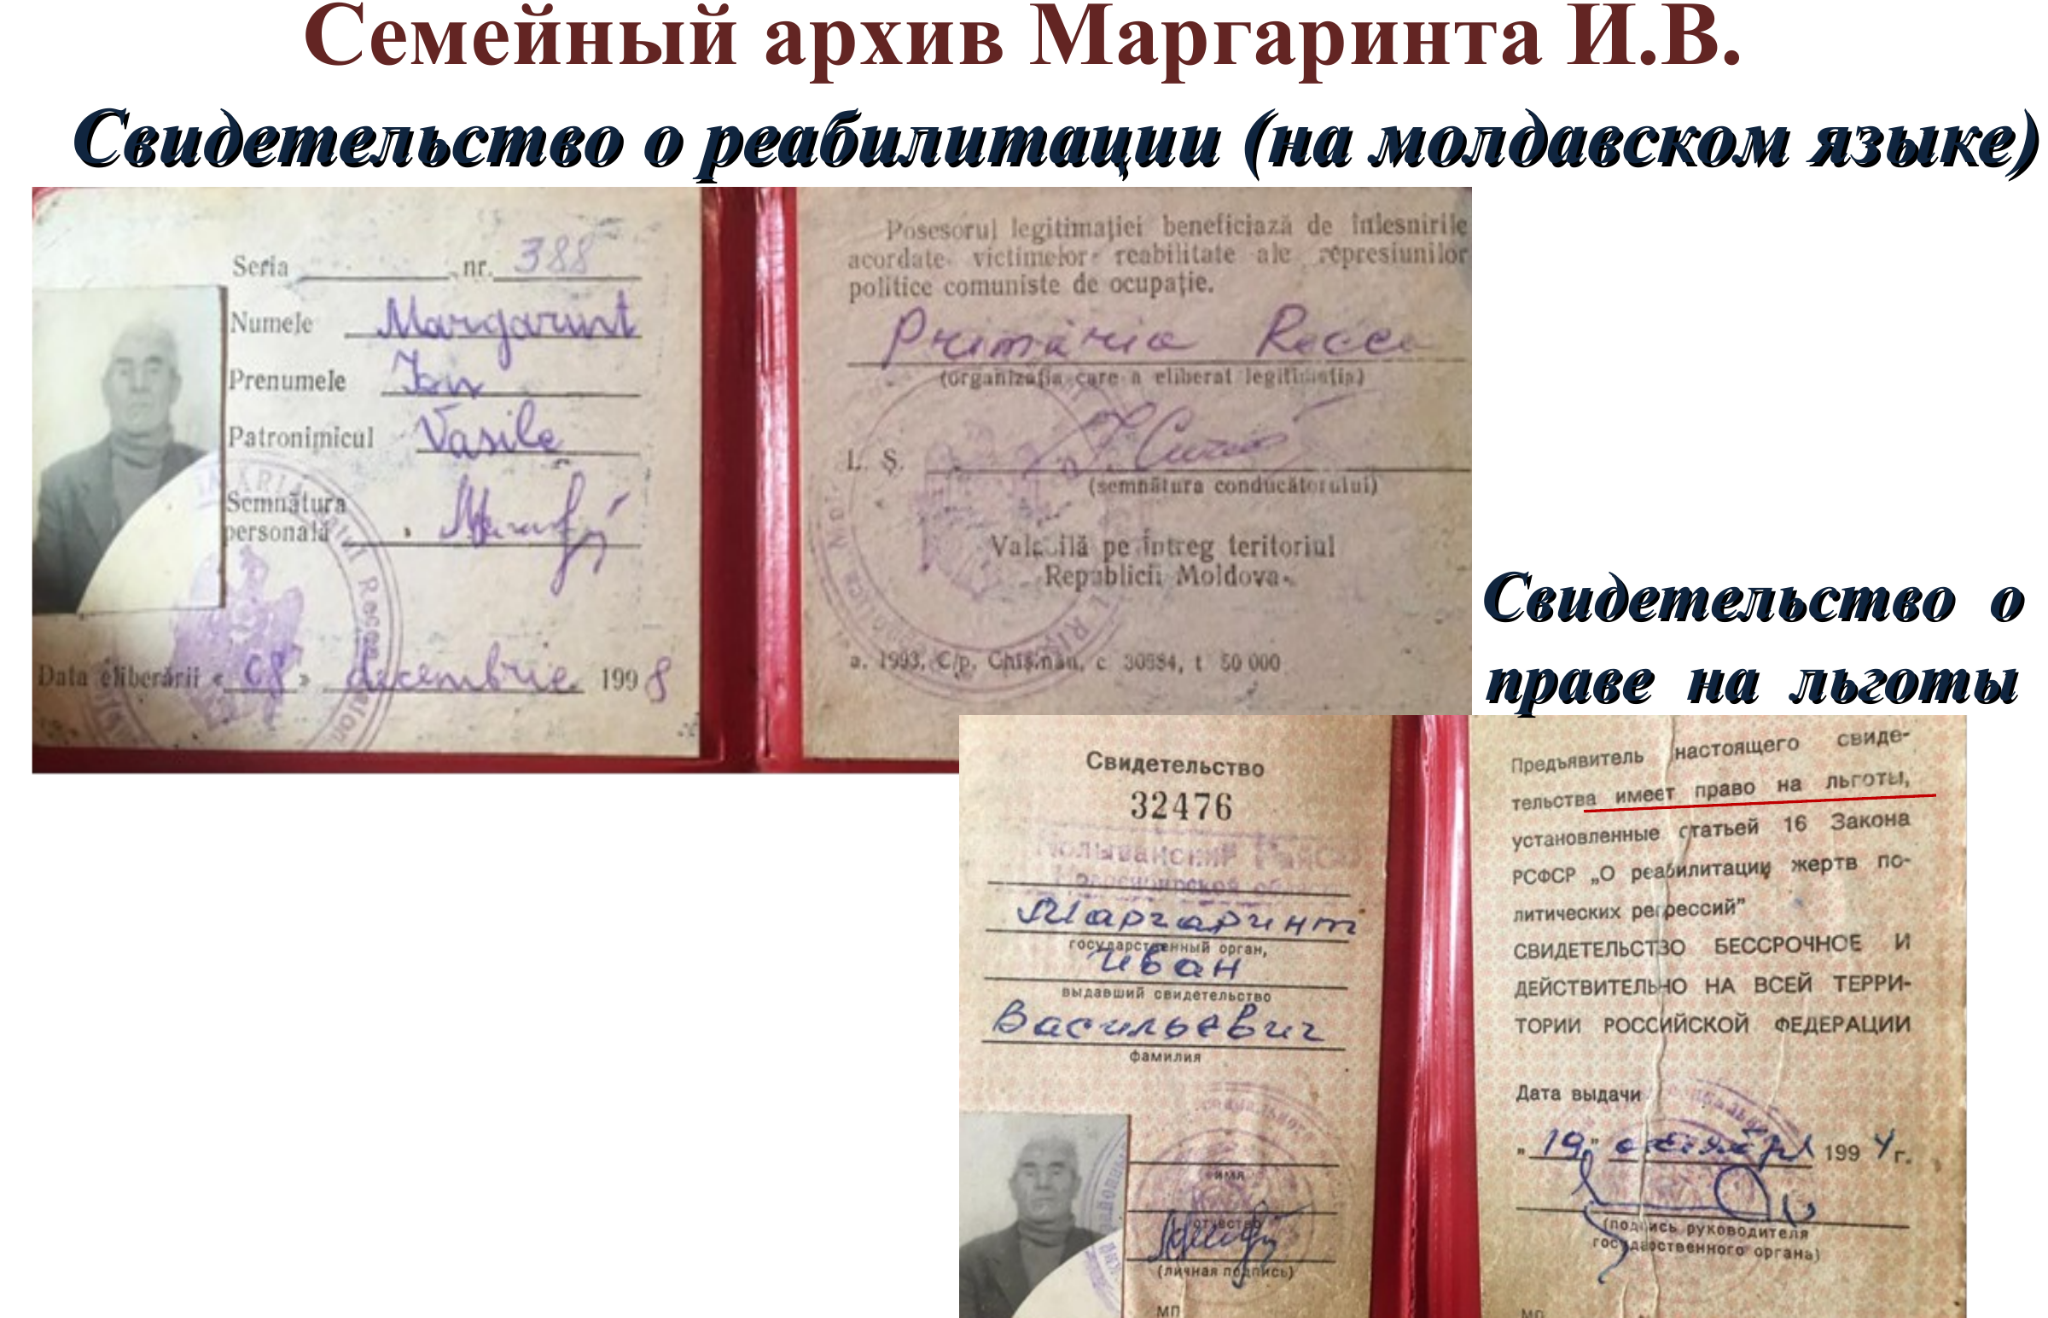 Семейный архив Маргаринта И.В.
Свидетельство о реабилитации (на молдавском языке)
Seria nr. 388
Numele Margarint
Prenumele Ion
Patronimicul Vasile
Semnătura
personală
Data eliberării « 08 » decembrie 1998
Posesorul legitimației beneficiază de înlesnirile
acordate victimelor reabilitate ale represiunilor
politice comuniste de ocupație.
Primăria Recea
(organizația care a eliberat legitimația)
L. Ș.
(semnătura conducătorului)
Valabilă pe întreg teritoriul
Republicii Moldova.
a. 1993, C/p, Chișinău, c 30584, t 50 000
Свидетельство о
праве на льготы
Свидетельство
32476
Колыванский Райсо
Новосибирской области
Маргаринт
государственный орган,
Иван
выдавший свидетельство
Васильевич
фамилия
имя
отчество
(личная подпись)
МП
Предъявитель настоящего свиде-
тельства имеет право на льготы,
установленные статьей 16 Закона
РСФСР „О реабилитации жертв по-
литических регрессий"
СВИДЕТЕЛЬСТВО БЕССРОЧНОЕ И
ДЕЙСТВИТЕЛЬНО НА ВСЕЙ ТЕРРИ-
ТОРИИ РОССИЙСКОЙ ФЕДЕРАЦИИ
Дата выдачи
„ 19 " октября 1994 г.
(подпись руководителя
государственного органа)
МП